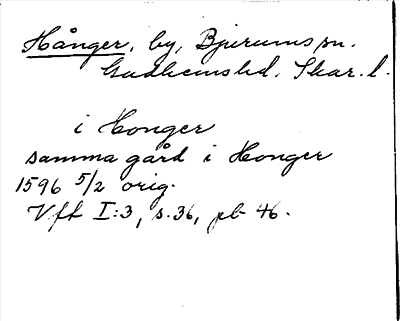 Hånger, by, Bjurums sn.
Gudhems hd. Skar. l.
i Honger
samma gård i Honger
1596 5/2 orig.
Vft I:3, s. 36, pb 46.